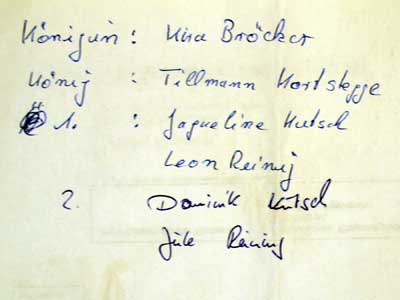 Königin : Kira Bröcker
König : Tillmann Hortstegge
1. : Jaqueline Kutsch
Leon Reinig
2. Dominik Kutsch
Jule Reining